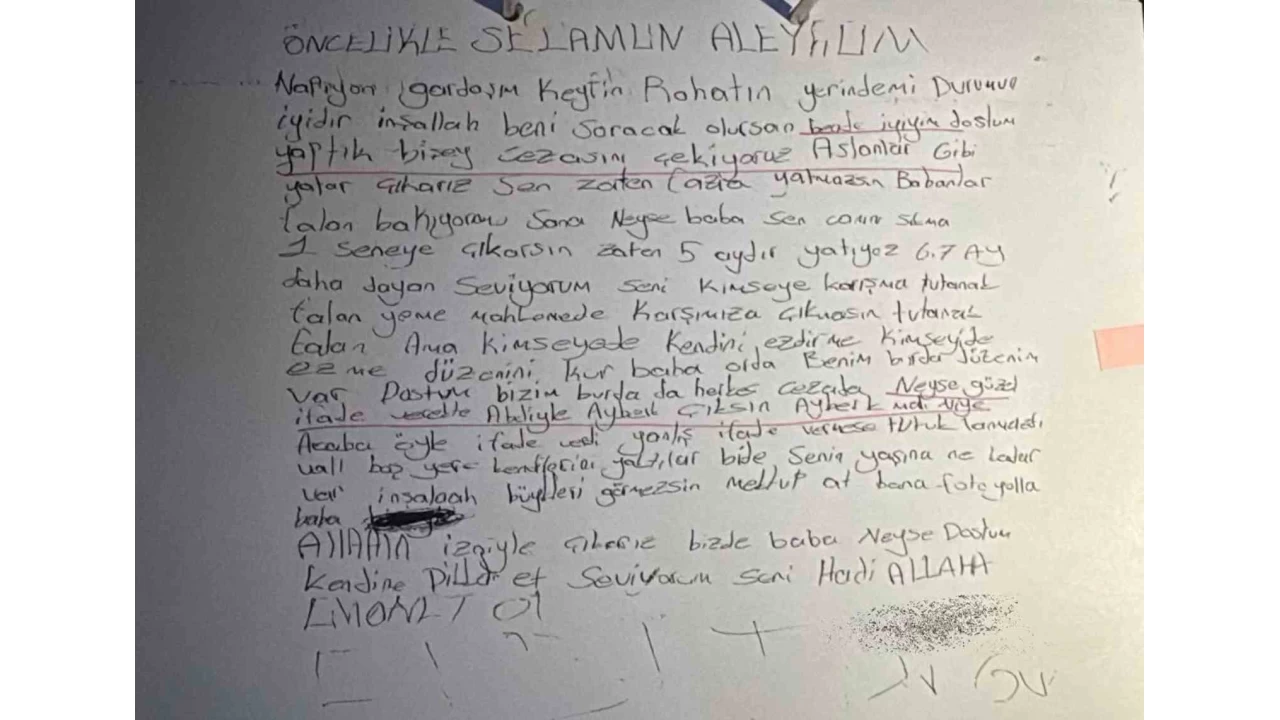 ÖNCELİKLE SELAMUN ALEYKUM
Napıyon gardaşım Keyfin Rahatın yerindemi Durumun
iyidir inşallah beni soracak olursan bende iyiyim dostum
yaptık bizey cezasını çekiyoruz Aslanlar Gibi
yatar çıkarız Sen zaten fazla yatmazsın Babanlar
falan bakıyormu Sana Neyse baba sen canını sıkma
1 seneye çıkarsın zaten 5 aydır yatıyoz 6.7 AY
daha dayan Seviyorum seni Kimseye karışma tutanak
falan yeme mahkemede Karşımıza çıkmasın tutanak
falan Ama kimseyede Kendini ezdirme Kimseyide
ezme düzenini kur baba orda Benim burda düzenim
var Dostum bizim burda da herkes cezada Neyse güzel
ifade Abeliyle Ayberk çıksın Ayberk niye
Acaba öyle ifade verdi yanlış ifade vermese tutuk
boş yere yaktılar bide Senin yaşına ne kadar
var inşalaah görmezsin mektup at bana foto yolla
baba
AllAHIN izniyle çıkarız bizde baba Neyse Dostum
Kendine Dikkat et Seviyorum seni Hadi ALLAHA
EMANET Ol